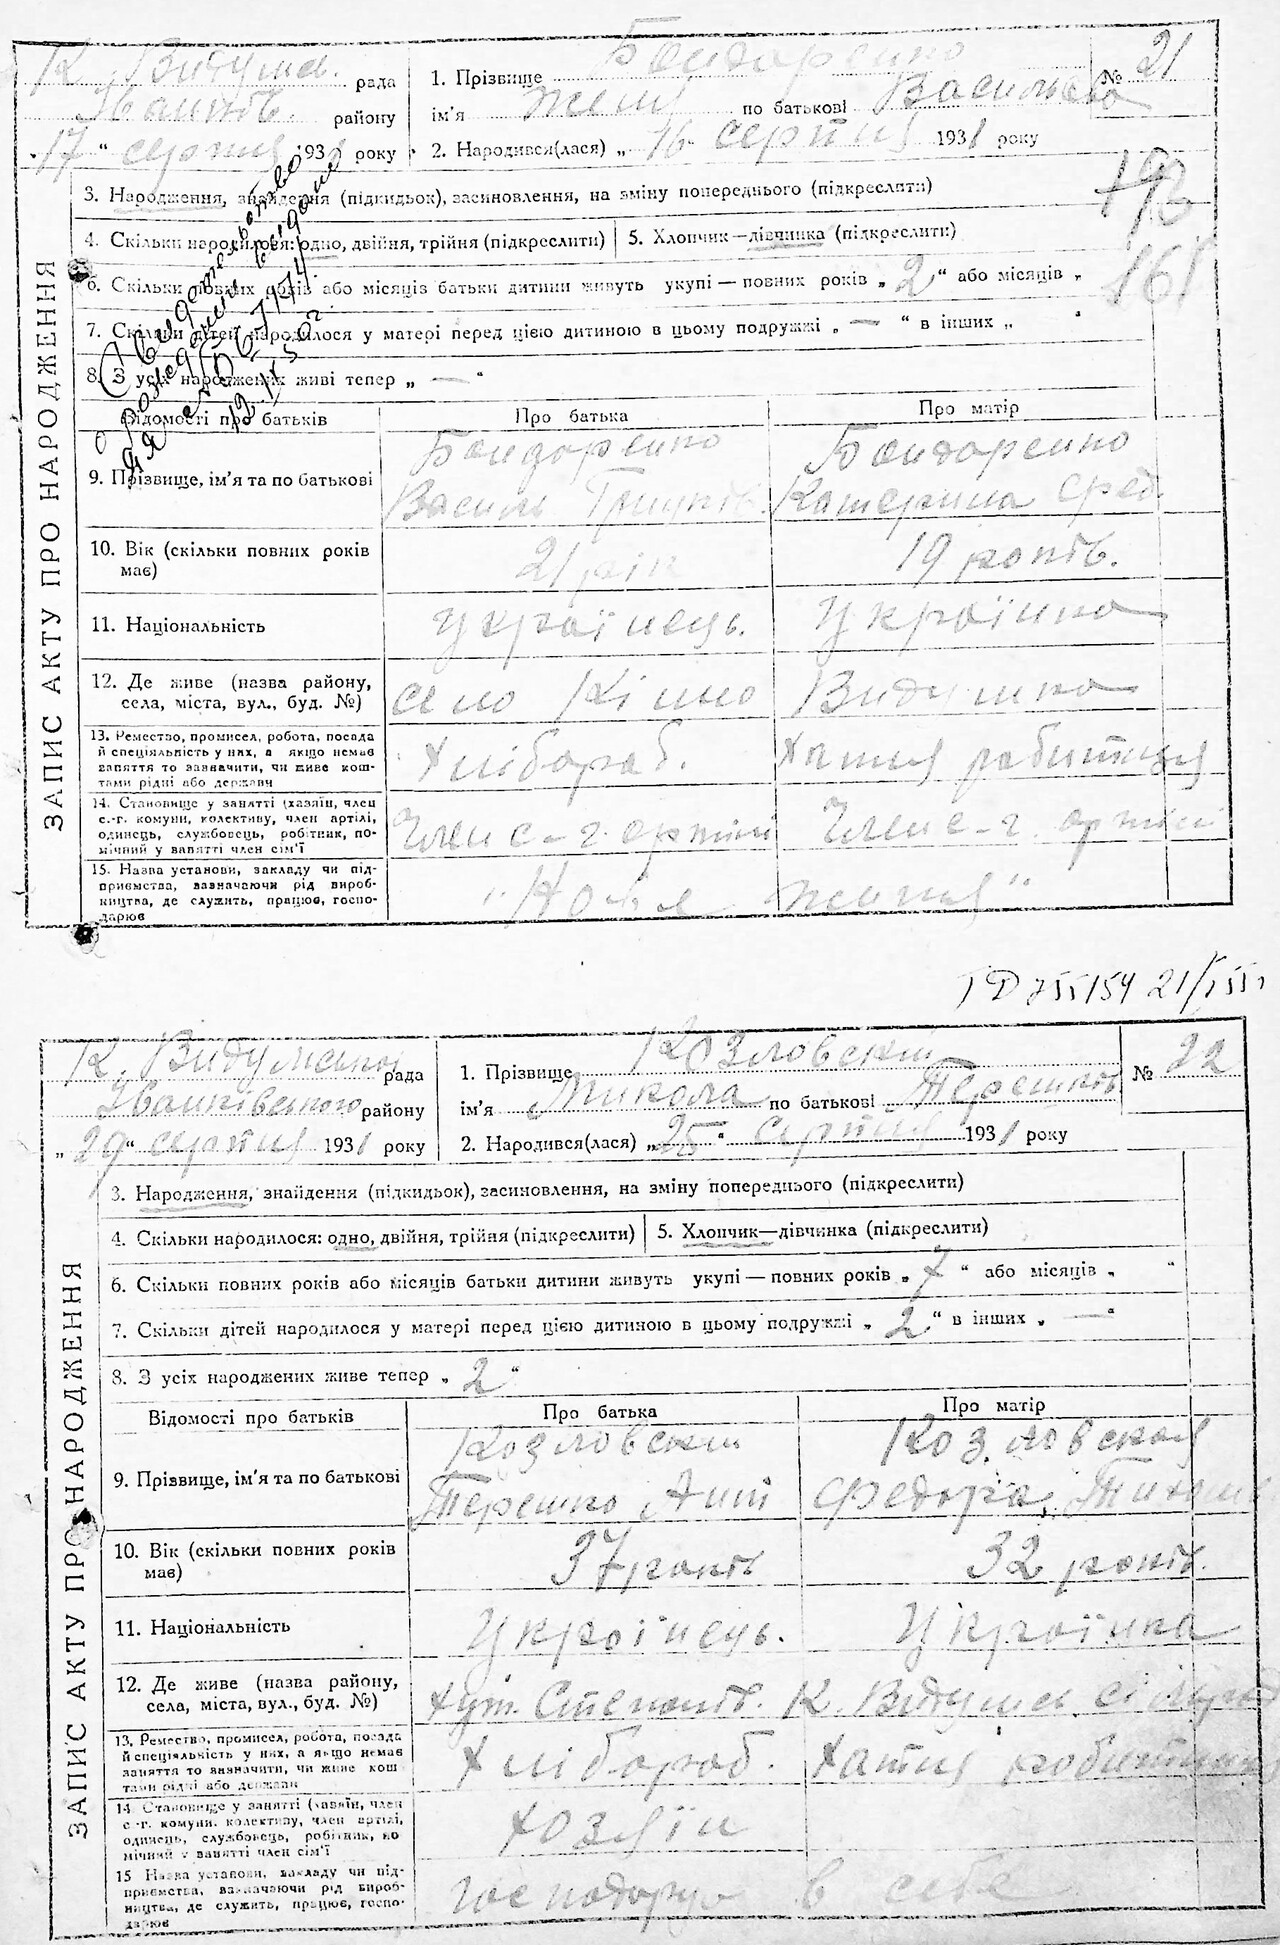 ЗАПИС АКТУ ПРО НАРОДЖЕННЯ
К. Видумск. рада
Іванків. району
„17“ серпня 1931 року
1. Прізвище Бондаренко
ім'я по батькові Васильевна
№ 21
2. Народився(лася) „16 серпня 1931 року
193
161
3. Народження, знайдення (підкидьок), засиновлення, на зміну попереднього (підкреслити)
4. Скільки народилося: одно, двійня, трійня (підкреслити) 5. Хлопчик—дівчинка (підкреслити)
6. Скільки повних років або місяців батьки дитини живуть укупі — повних років „2“ або місяців „
7. Скільки дітей народилося у матері перед цією дитиною в цьому подружжі „—“ в інших „ “
8. З усіх народжених живі тепер „—“
Відомості про батьків Про батька Про матір
9. Прізвище, ім'я та по батькові
Бондаренко Бондаренко
Василь Катерина
10. Вік (скільки повних років має) 21 рік 19 років.
11. Національність Українець. Українка
12. Де живе (назва району, села, міста, вул., буд. №) село
13. Ремество, промисел, робота, посада й спеціяльність у них, а якщо немає заняття то зазначити, чи живе коштами рідні або держави
Хлібороб. Хатня робитниця
14. Становище у занятті (хазяїн, член с.-г. комуни, колективу, член артілі, одинець, службовець, робітник, помічний у занятті член сім'ї
Член с-г. артілі Член с-г. артілі
15. Назва установи, закладу чи підприємства, зазначаючи рід виробництва, де служить, працює, господарює
ТД 755154 21/V 55 г
ЗАПИС АКТУ ПРО НАРОДЖЕННЯ
К. Видумська рада
Іванківського району
„29“ серпня 1931 року
1. Прізвище Козловский
ім'я Микола по батькові Терешків
№ 22
2. Народився(лася) „25“ серпня 1931 року
3. Народження, знайдення (підкидьок), засиновлення, на зміну попереднього (підкреслити)
4. Скільки народилося: одно, двійня, трійня (підкреслити) 5. Хлопчик—дівчинка (підкреслити)
6. Скільки повних років або місяців батьки дитини живуть укупі — повних років „7“ або місяців „ “
7. Скільки дітей народилося у матері перед цією дитиною в цьому подружжі „2“ в інших „—“
8. З усіх народжених живе тепер „2“
Відомості про батьків Про батька Про матір
9. Прізвище, ім'я та по батькові
Козловский Козловская
Терешко Ант Федора
10. Вік (скільки повних років має) 37 років 32 років.
11. Національність Українець. Українка
12. Де живе (назва району, села, міста, вул., буд. №) хут. К. Видумск сільрад
13. Ремество, промисел, робота, посада й спеціяльність у них, а якщо немає заняття то зазначити, чи живе коштами рідні або держави
Хлібороб. Хатня робитниця
14. Становище у занятті (хазяїн, член с.-г. комуни, колективу, член артілі, одинець, службовець, робітник, помічний у занятті член сім'ї
хозяїн
15 Назва установи, закладу чи підприємства, зазначаючи рід виробництва, де служить, працює, господарює
господарує в себе